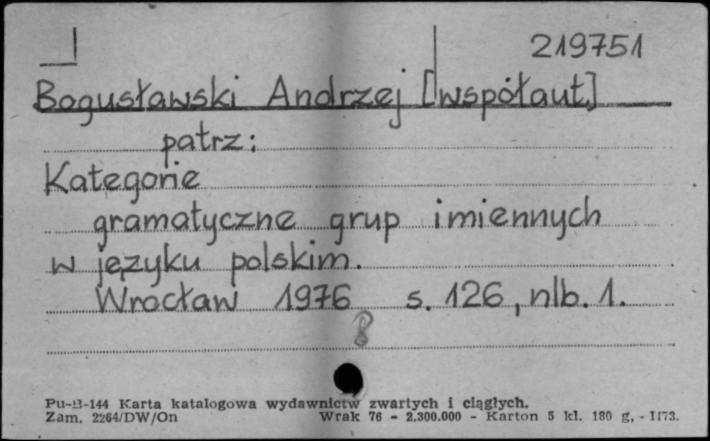 219751
Bogusławski Andrzej [współaut.]
patrz:
Kategorie
gramatyczne grup imiennych
w języku polskim.
Wrocław 1976 s. 126, nlb. 1.
8
Pu-B-144 Karta katalogowa wydawnictw zwartych i ciągłych.
Zam. 2264/DW/On Wrak 76 - 2.300.000 - Karton 5 kl. 180 g, - II73.